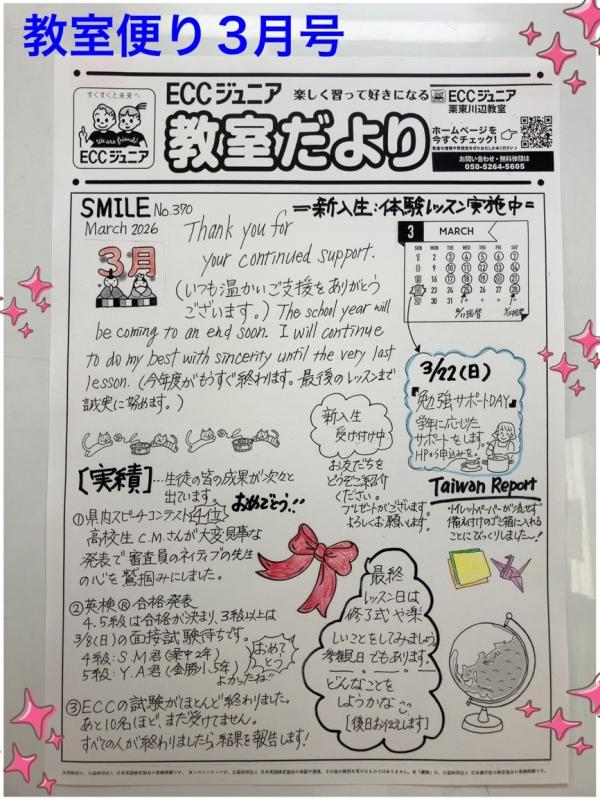 教室便り3月号
すくすくと未来へ
We are friends!
ECCジュニア
ECCジュニア 楽しく習って好きになる
教室だより
ECCジュニア
栗東川辺教室
ホームページを
今すぐチェック!
お問い合わせ・無料体験は
050-5264-5605
SMILE No.370
March 2026
=新入生:体験レッスン実施中=
3月
Thank you for
your continued support.
(いつも温かいご支援をありがとう
ございます。) The school year will
be coming to an end soon. I will continue
to do my best with sincerity until the very last
lesson. (今年度がもうすぐ終わります。最後のレッスンまで
誠実に努めます。)
3 MARCH
SUN MON TUE WED THU FRI SAT
1 2 3 4 5 6 7
8 9 10 11 12 13 14
15 16 17 18 19 20 21
22 23 24 25 26 27 28
29 30 31
3/22(日)
『勉強サポートDAY』
学年に応じた
サポートをします。
HPから申込みを。
新入生
受け付け中
お友だちを
どうぞご紹介
ください。
プレゼントがございます。
よろしくお願いします。
[実績]…生徒の皆の成果が次々と
出ています。おめでとう!!
①県内スピーチコンテスト4位
高校生C.M.さんが大変見事な
発表で審査員のネイティブの先生
の心を鷲掴みにしました。
②英検®合格発表
4.5級は合格が決まり、3級以上は
3/8(日)の面接試験待ちです。
4級:S.M君(栗中2年)
5級:Y.A君(金勝小5年)
おめでとう
よかったね!!
③ECCの試験がほとんど終わりました。
あと10名ほど、まだ受けてません。
すべての人が終わりましたら結果を報告します!
Taiwan Report
・トイレットペーパーが流せず
備え付けのゴミ箱に入れる
ことにびっくりしました〜!
最終
レッスン日は
修了式や楽
しいことをしてみましょう
参観日でもあります。
どんなことを
しようかな
[後日お伝えします]